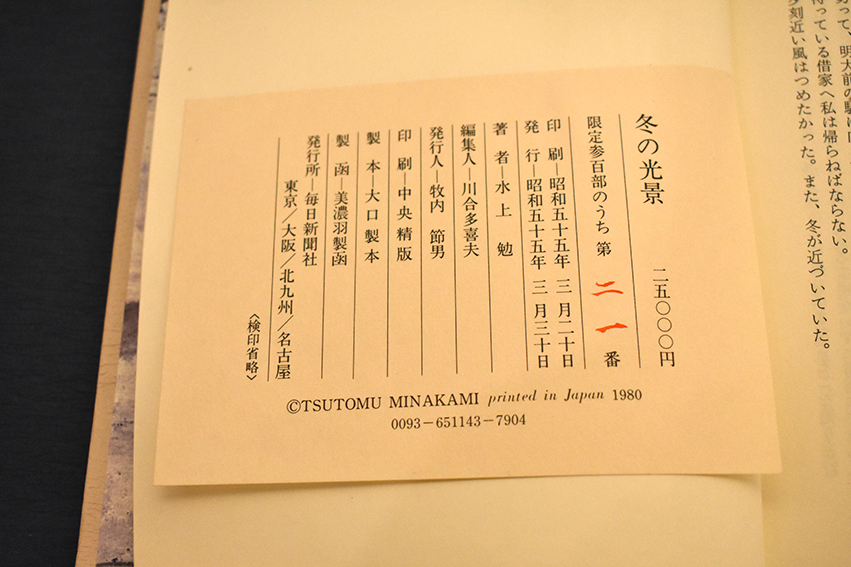 って、明大前の駅
待っている借家へ私は帰らねばならない。
夕刻近い風はつめたかった。また、冬が近づいていた。
冬の光景 二五〇〇〇円
限定参百部のうち 第 二一 番
印 刷―昭和五十五年 三 月二十日
発 行―昭和五十五年 三 月三十日
著 者―水 上 勉
編集人―川合多喜夫
発行人―牧内 節男
印 刷―中央 精版
製 本―大口 製本
製 函―美濃羽製函
発行所―毎日新聞社
東京/大阪/北九州/名古屋
〈検印省略〉
©TSUTOMU MINAKAMI printed in Japan 1980
0093-651143-7904